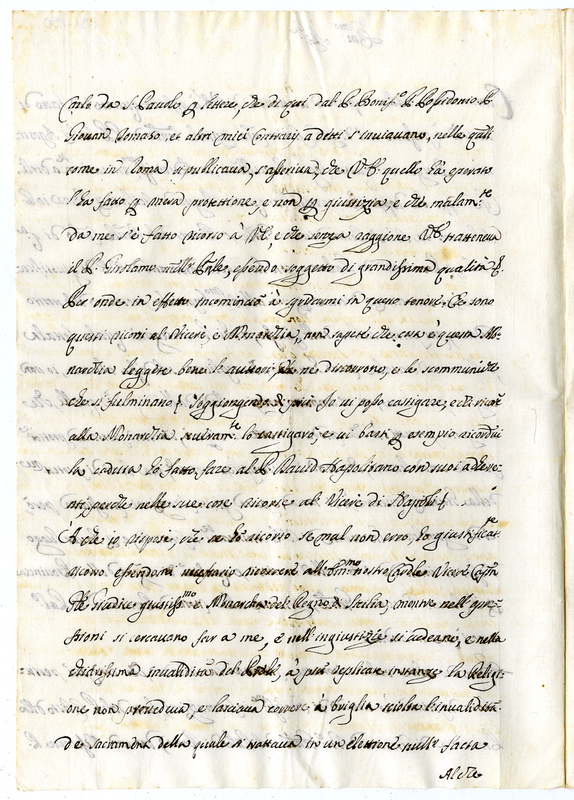 Carlo da S. Paulo p lettere, che di qui dal P. Bonif.o P. Possidonio P.
Giovan Tomaso, et altri amici Contrarij a detti s'inviavano, nelle quali
come in Roma si publicava, s'asseriva, che V.E. quello hà operato
l'hà fatto p mera protettione, e non p giustitia, e che malam.te
da me s'è fatto ricorso à V.E. e che senza raggione V.E. tratteneva
il P. Girolamo essendo soggetto di grandissima qualità
Per onde in effetto incominciò à in questo tenore, Ce sono
questi ricorsi al Vicerè, e Monarchia, non sapete che cosa è questa Mo-
narchia leggete bene li auttori ne discorrono, e le scommuniche
che si fulminano Soggiongendo Io vi posso castigare, e chi ricorre
alla Monarchia lo castigarò, e vi basti p esempio ricordarvi
la caduta hò fatto fare al P. David Napolitano con suoi adhere-
nti, perche nelle sue cose ricorse al Vicerè di Napoli
A che io risposi, che se hò ricorso se mal non erro, hò
ricorso essendomi necessario ricorrere all'Em.mo nostro Vicerè
Giudice giustiss.mo e Monarcha del Regno di Sicilia, mentre nell' que-
stioni si cercavano far a me, e nell'ingiustizie si vedeano, e nella
invalidità del à più replicate instanze la Religi-
one non provedeva, e lasciava correre à briglia sciolta l'invalidità
de Sacramenti della quale si trattava in un'elettione nulla fatta
Al che